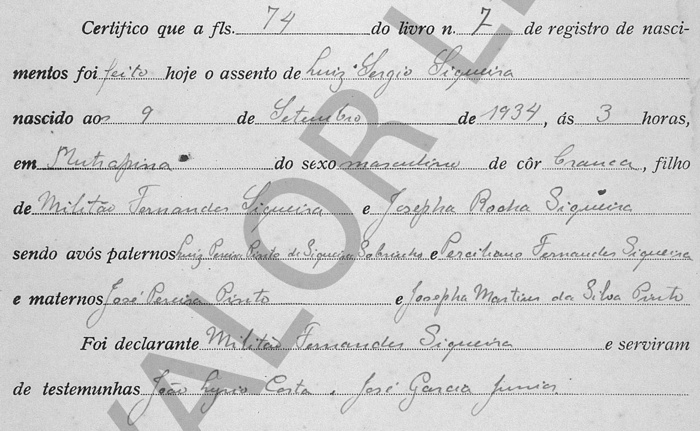 Certifico que a fls. 74 do livro n. 7 de registro de nasci-
mentos foi feito hoje o assento de Luiz Sergio Siqueira
nascido aos 9 de Setembro de 1934, ás 3 horas,
em do sexo masculino de côr branca, filho
de Militão Fernandes Siqueira e Josepha Rocha Siqueira
sendo avós paternos Luiz Pereira Pinto de Siqueira Sobrinho e Perciliana Fernandes Siqueira
e maternos José Pereira Pinto e Josepha Martins da Silva Pinto
Foi declarante Militão Fernandes Siqueira e serviram
de testemunhas João Lyrio Costa e José Garcia Junior
VALOR